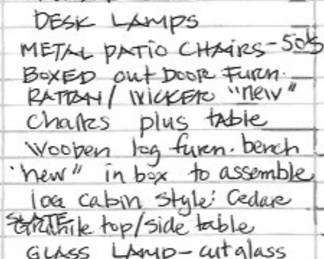 DESK LAMPS
METAL PATIO CHAIRS-50's
BOXED out Door Furn.
RATTAN/ WICKER "new"
chairs plus table
Wooden log furn. bench
"new" in box to assemble
log cabin style: Cedar
SLATE
Granite top/side table
GLASS LAMP-cut glass